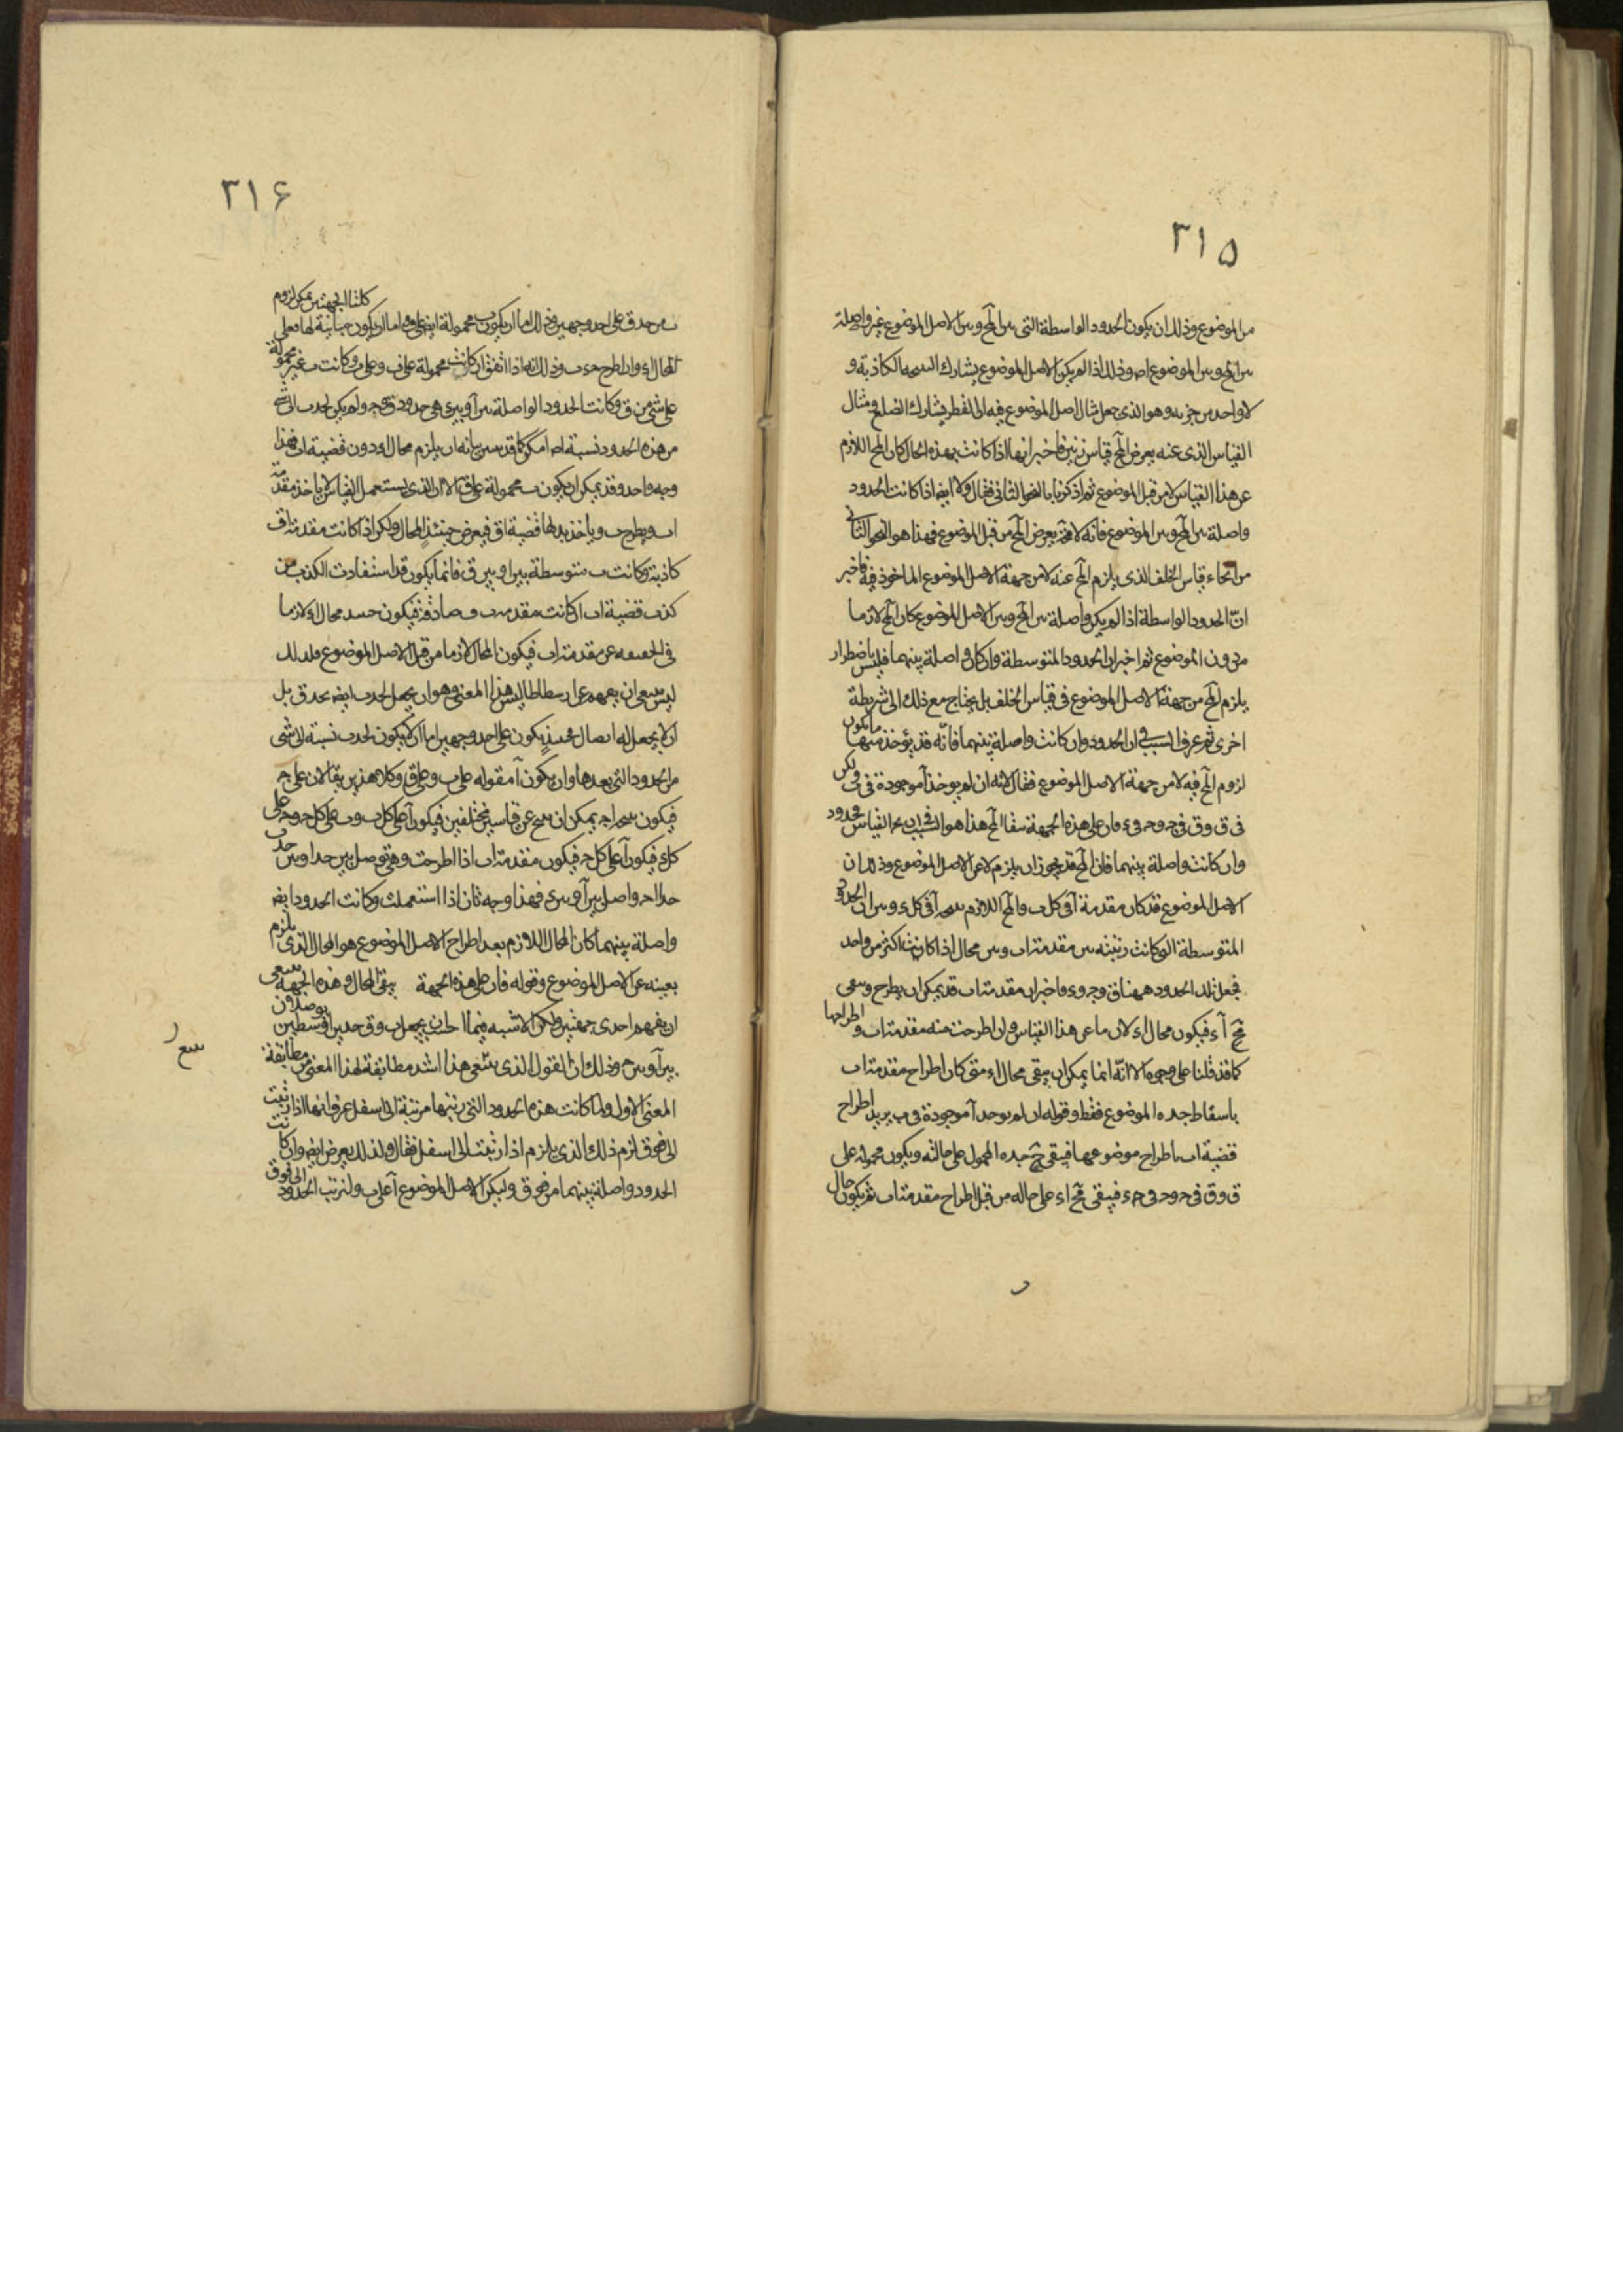 ٣١٥
من الموضوع وذلك ان يكون الحدود الواسطة التى بين المح وبين الاصل الموضوع غير واصلة
بين المح وبين الموضوع اصلا وذلك اذا لم يكن الاصل الموضوع يشارك النتيجة الكاذبة و
لا واحد من جزئيه وهو الذى جعل مثال اصل الموضوع فيه ان القطر يشارك الضلع ومثال
القياس الذى عنه يعرض المح قياس زينن فاخبر انها اذا كانت بهذه الحال كان المح اللازم
عن هذا القياس لا من قبل الموضوع ثم اذكرنا بالنحو الثانى فقال ولا ايضا اذا كانت الحدود
واصلة بين المح وبين الموضوع فانه لا محة يعرض المح من قبل الموضوع فهذا هو النحو الثانى
من انحاء قياس الخلف الذى يلزم المح عنه لا من جهة الاصل الموضوع الماخوذ فيه فاخبر
ان الحدود الواسطة اذا لم يكن واصلة بين المح وبين الاصل الموضوع كان المح لازما
من دون الموضوع ثم اخبر ان الحدود المتوسطة وان كان واصلة بينهما فليس باضطرار
يلزم المح من جهة الاصل الموضوع فى قياس الخلف بل يحتاج مع ذلك الى شريطة
اخرى ثم عرف السبب فى ان الحدود وان كانت واصلة بينهما فانه قد يؤخذ منها ما يكون
لزوم المح فيه لا من جهة الاصل الموضوع فقال لانه ان لم يوخذ آ موجودة فى ب ولكن
فى ق و ق فى ج و ج فى ء فان على هذه الجهة يبقا المح هذا هو السبب فى ان القياس وحدود
وان كانت واصلة بينهما فان المح قد يجوز ان يلزم لا عن الاصل الموضوع وذلك ان
الاصل الموضوع قد كان مقدمة آ فى كل ب والمح اللازم نتيجة آ فى كل ء وبين ان الحدود
المتوسطة الو كانت رتبته بين مقدمة اب وبين محال اذا كانت اكثر من واحد
فجعل تلك الحدود ههنا ق و ج و ء فاخبر ان مقدمة اب قد يمكن ان يطرح ويبقى
مح آ ء فيكون محال اء لازما عن هذا القياس وان اطرحت منه مقدمة اب واطراحها
كما قد قلنا على وجوه الا انه انما يمكن ان يبقى محال اء متى كان اطراح مقدمة اب
باسقاط جده الموضوع فقط وقوله ان لم يوجد آ موجودة فى ب يريد اطراح
قضية اب باطراح موضوعها فيبقى ح جده المحمول على حالته ويكون محموله على
ق و ق فى ج و ج فى ء فيبقى مح اء على حاله من قبل اطراح مقدمة اب ثم يكون حال
٣١٦
ب من حد ق على احد وجهين وذلك اما ان يكون ب محمولة ايضا على و اما ان يكون مباينة لها فعلى كلتا الجهتين يمكن لزوم
المحال اء وان اطرح حد ب وذلك انه اذا اتفق ان كانت محمولة على ب وعلى ق وكانت ب غير محمولة
على شئ من ق وكانت الحدود الواصلة بين آ وبين ء هى حدود ق ج ولم يكن لحد ب الى شئ
من هذه الحدود نسبة اصلا امكن كما قد تبين بيانه ان يلزم محال اء دون قضية اب فهذا
وجه واحد وقد يمكن ان يكون ب محمولة على ق الا ان الذى يستعمل القياس لا ياخذ مقدمة
اب ويطرح ب وياخذ بدلها قضية اق فيعرض حينئذ المحال ولكن اذا كانت مقدمة اق
كاذبة وكانت ب متوسطة بين ا وبين ق فانما يكون قد استفادت الكذب من
كذب قضية اب اذ كانت مقدمة ب ق صادقة فيكون حينئذ محال اء لازما
فى الحقيقة عن مقدمة اب فيكون المحال لازما من قبل الاصل الموضوع فلذلك
ليس ينبغى ان يفهم عن ارسطاطاليس هذا المعنى وهو ان يجعل لحد ب ايضا بحد ق بل
ان لا يجعل له اتصال فحينئذ يكون على احد وجهين اما ان لا يكون لحد ب نسبة الى شئ
من الحدود التى بعدها وان يكون آ مقوله على ب وعلى ق وكلا هذين يقالان على ج
فيكون نتيجة اج يمكن ان ينتج عن قياسين مختلفين فيكون آ على كل ب و ب على كل ج و ج على
كل ء فيكون آ على كل ج فيكون مقدمة اب اذا اطرحت وهى توصل بين حد ا وبين حد ب
حد ا لحد واصل بين آ وبين ء فهذا وجه ثان اذا استعملت وكانت الحدود ايضا
واصلة بينهما كان المحال اللازم بعد اطراح الاصل الموضوع هو المحال الذى يلزم
بعينه عن الاصل الموضوع وقوله فان على هذه الجهة يبقى المحال وهذه الجهة ينبغى
ان يفهم احدى جهتين ولكن الاشبه فيما احسب ان يجعل ب و ق حدين اوسطين يوصلان
بين آ وبين ج وذلك ان القول الذى ينتهى هذا اشد مطابقة لهذا المعنى من مطابقة
المعنى الاول ولما كانت هذه الحدود التى رتبها مرتبة الى اسفل عرف انها اذا رتبت
الى فوق لزم ذلك الذى يلزم اذا رتبت الى اسفل فقال ولذلك يعرض ايضا وان كانت
الحدود واصلة بينهما من فوق وليكن الاصل الموضوع آ على ب ولنرتب الحدود الى فوق